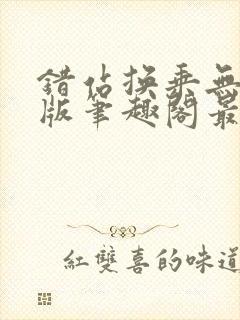 錯佔換乘無
版筆趣閣最
紅雙喜的味道